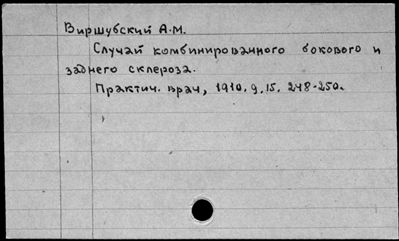 Виршубский А.М.
Случай комбинированного бокового и
заднего склероза.
Практич. врач, 1910.9.15. 248-250.